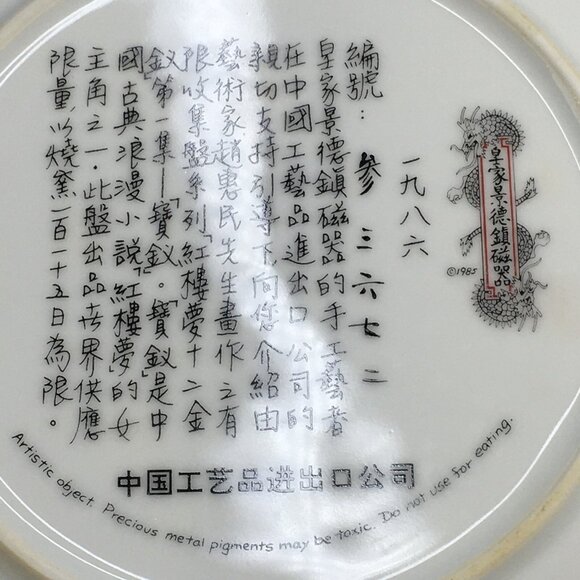 皇家景德鎮磁器
©1985
一九八六
編號：參三六七二
皇家景德鎮磁器的手工藝者
在中國工藝品進出口公司的
親切支持引導下向您介紹由
藝術家趙惠民先生畫作之有
限收集盤系列「紅樓夢十二金
釵」第一集—「寶釵」。「寶釵」是中
國古典浪漫小說「紅樓夢」的女
主角之一。此盤出品世界供應
限量，以燒窯一百一十五日為限。
中国工艺品进出口公司
Artistic object. Precious metal pigments may be toxic. Do not use for eating.